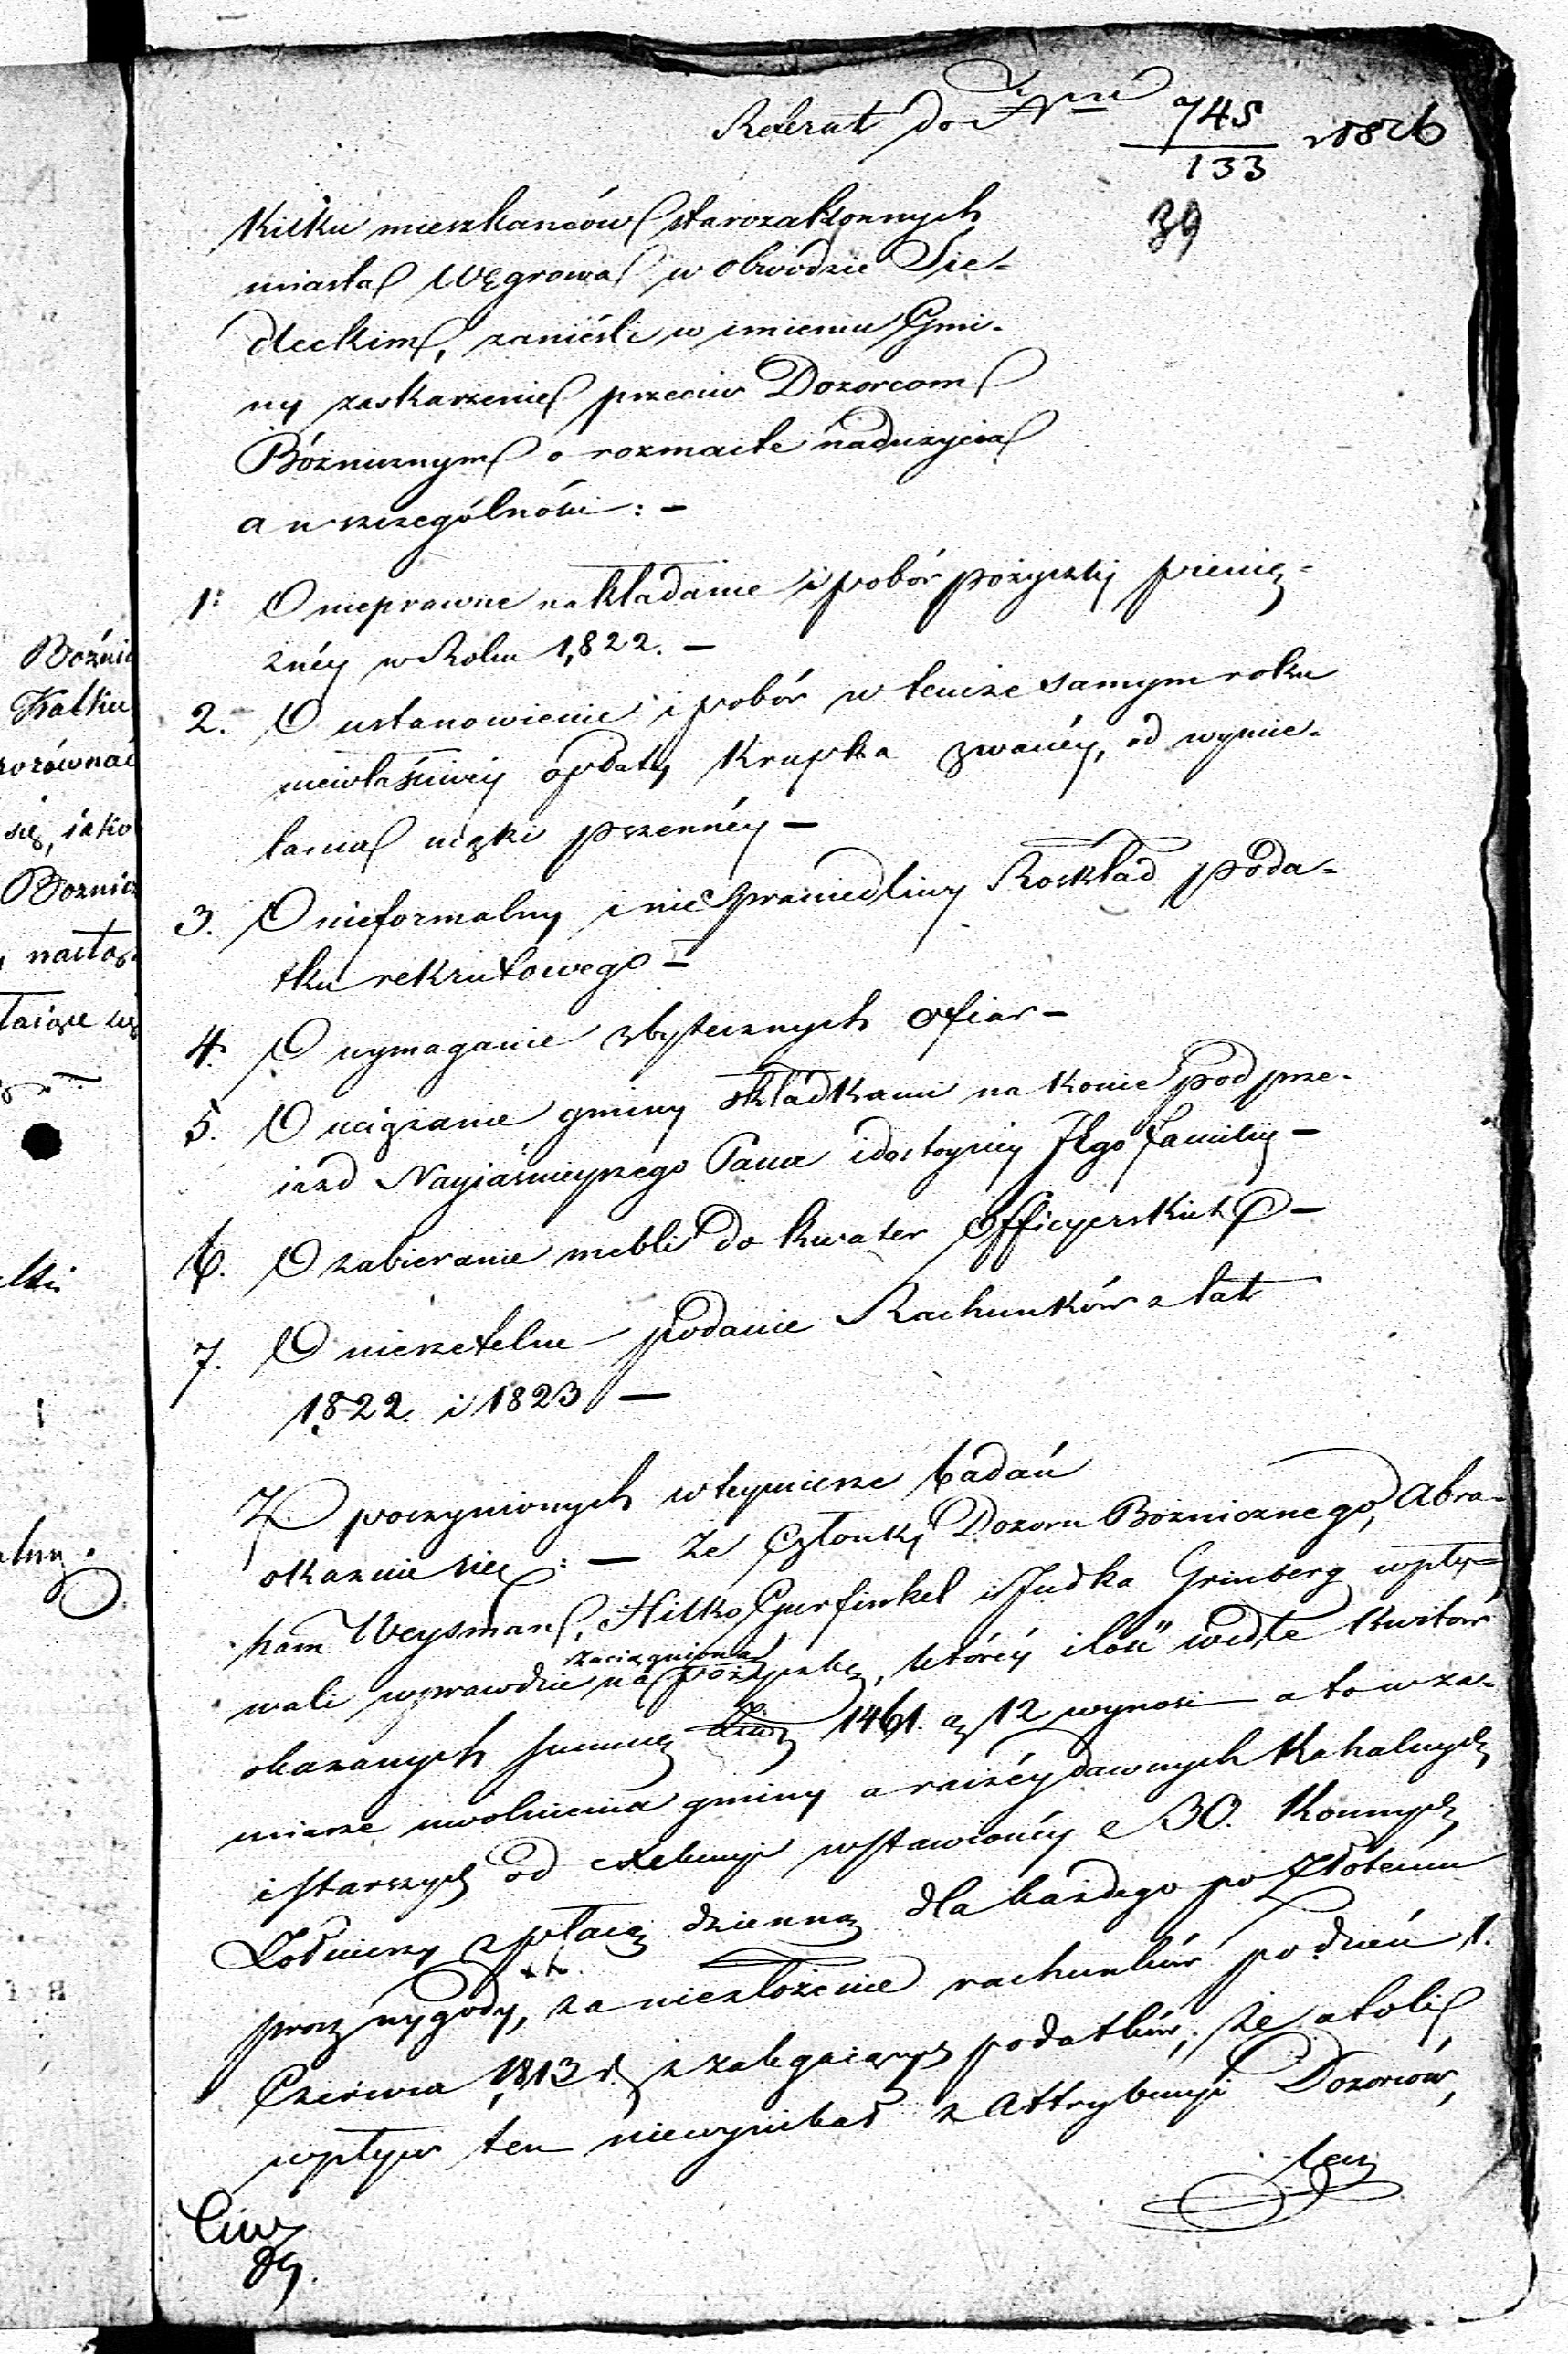 Referat do Nru 745/133 1826
39
Kilku mieszkańców starozakonnych
miasta Węgrowa w obwodzie Sie-
dleckim, zanieśli w imieniu Gmi-
ny zaskarzenie przeciw Dozorcom
Bóźnicznym o rozmaite nadużycia
a w szczególności: -
1: O nieprawne nakładanie i pobór pożyczki pienię-
żnéy w Roku 1,822. -
2. O ustanowienie i pobór w temże samym roku
niewłaściwéy opłaty Krupka zwanéy, od wymie-
łania mąki pszennéy -
3. O nieformalny i niesprawiedliwy Roskład poda-
tku rekrutowego -
4. O wymaganie zbytecznych ofiar -
5. O uciążanie gminy składkami na konie pod prze-
iazd Nayiaśnieyszego Pana i dostoyney Jego familii -
6. O zabieranie mebli do kwater Officyerskich -
7. O nierzetelne podanie Rachunków z lat
1822. i 1823 -
Z poczynionych w teymierze badań
okazuie się: - że Członki Dozoru Bóźnicznego, Abra-
ham Weysman, Hilko Gurfinkel i Judka Grinberg wpły-
wali wprawdzie na zaciągnioną pożyczkę, któréy ilość wedle Kwitów
okazanych summę 1461. gr 12 wynosi a to w za-
miarze uwolnienia gminy a raczéy dawnych Kahalnych
i starszych od exekucyi wstawionéy 30. Konnych
Żołnierzy z płacą dzienną dla każdego po Złotemu
prócz wygody, za niezłożenie rachunków po dzień 1.
Czerwca 1813 r. z zalegaiących podatków; że atoli
wpływ ten niewynikał z Attrybucyi Dozorców,
lecz